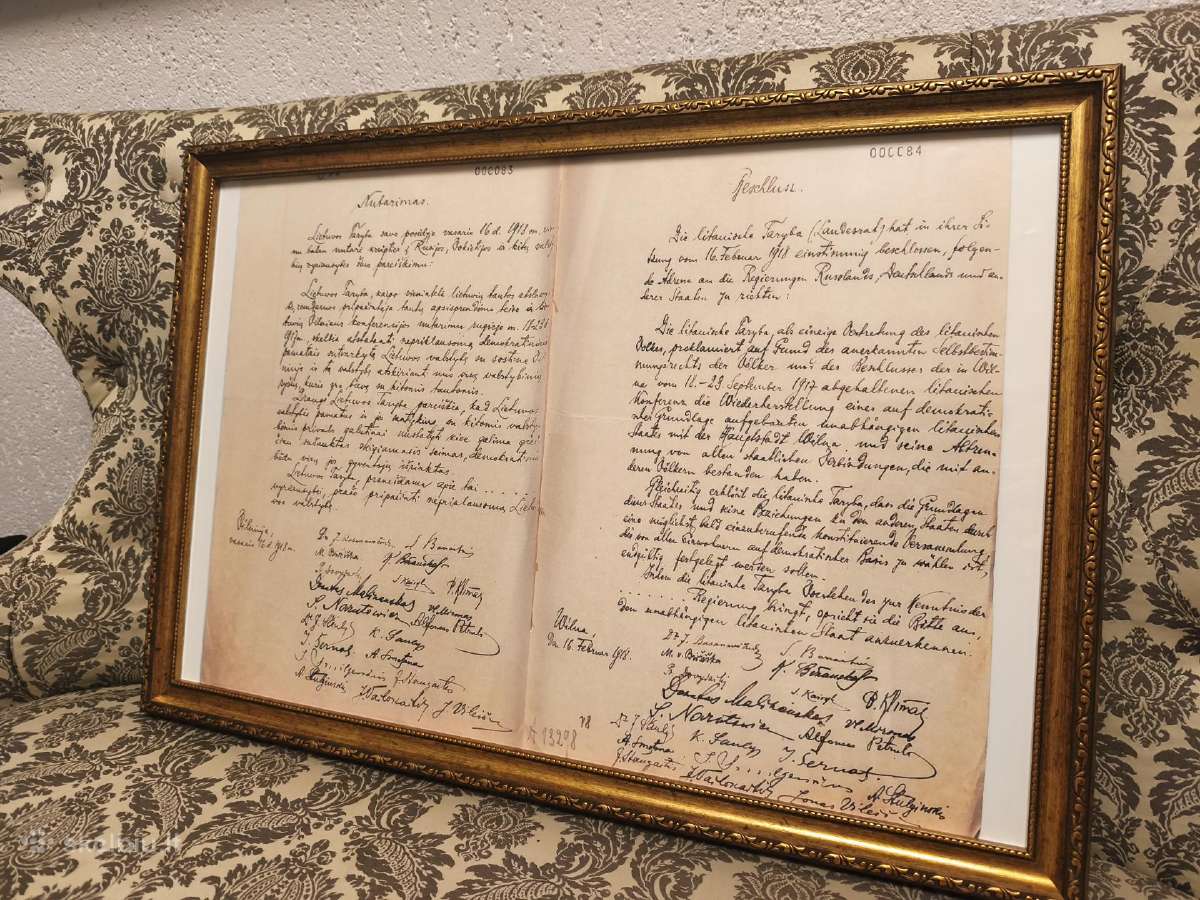 000083
Nutarimas.
Lietuvos Taryba savo posėdyje vasario 16 d. 1918 m. vie-
nu balsu nutarė kreiptis į Rusijos, Vokietijos ir kitų valsty-
bių vyriausybes šiuo pareiškimu:
Lietuvos Taryba, kaipo vienintelė lietuvių tautos atstovy-
bė, remdamos pripažintąja tautų apsisprendimo teise ir lie-
tuvių Vilniaus konferencijos nutarimu rugsėjo m. 18-23 d.
1917 m. skelbia atstatanti nepriklausomą demokratiniais
pamatais sutvarkytą Lietuvos valstybę su sostine Vil-
niuje ir tą valstybę atskirianti nuo visų valstybinių
ryšių, kurie yra buvę su kitomis tautomis.
Drauge Lietuvos Taryba pareiškia, kad Lietuvos
valstybės pamatus ir jos santykius su kitomis valstybė-
mis privalo galutinai nustatyti kiek galima grei-
čiau sušauktas steigiamasis seimas, demokratiniu
būdu visų jos gyventojų išrinktas.
Lietuvos Taryba, pranešdama apie tai . . . . . .
vyriausybei, prašo pripažinti nepriklausomą Lietu-
vos valstybę.
Vilniuje,
vasario 16 d. 1918 m.
Dr J. Basanavičius
S. Banaitis
M. Biržiška
K Bizauskas
P. Dovydaitis
S Kairys
P. Klimas
Donatas Malinauskas
Vl. Mironas
S. Narutowicz
Alfonas Petrulis
Dr J. Šaulys
K. Šaulys
J. Šernas
A Smetona
J. Staugaitis
A. Stulginski
J Vileišis
№ 13298
78
000084
Beschluss.
Die litauische Taryba (Landesrat) hat in ihrer Si-
tzung vom 16. Februar 1918 einstimmig beschlossen, folgen-
de Adresse an die Regierungen Russlands, Deutschlands und an-
derer Staaten zu richten:
Die litauische Taryba, als einzige Vertretung des litauischen
Volkes, proklamiert auf Grund des anerkannten Selbstbestim-
mungsrechts der Völker und des Beschlusses der in Wil-
na vom 18.-23 September 1917 abgehaltenen litauischen
Konferenz die Wiederherstellung eines auf demokrati-
scher Grundlage aufgebauten unabhängigen litauischen
Staats mit der Hauptstadt Wilna und seine Abtren-
nung von allen staatlichen Verbindungen, die mit an-
deren Völkern bestanden haben.
Gleichzeitig erklärt die litauische Taryba, dass die Grundlagen
dieses Staates und seine Beziehungen zu den anderen Staaten durch
eine möglichst bald einzuberufende konstituierende Versammlung,
die von allen Einwohnern auf demokratischer Basis zu wählen ist,
endgiltig festgelegt werden sollen.
Indem die litauische Taryba Vorstehendes zur Kenntnis der
. . . . . . . Regierung bringt, spricht sie die Bitte aus,
den unabhängigen litauischen Staat anzuerkennen.
Wilna
Den 16. Februar 1918.
Dr J. Basanavičius
S. Banaitis
M. v. Biržiška
K. Bizauskas
P. Dovydaitis
S. Kairys
P. Klimas
Donatas Malinauskas
Vl. Mironas
S. Narutowicz
Alfonas Petrulis
Dr J. Šaulys
K. Šaulys
J. Šernas
A Smetona
J. Staugaitis
A. Stulginski
Jonas Vileišis
skelbiu.lt